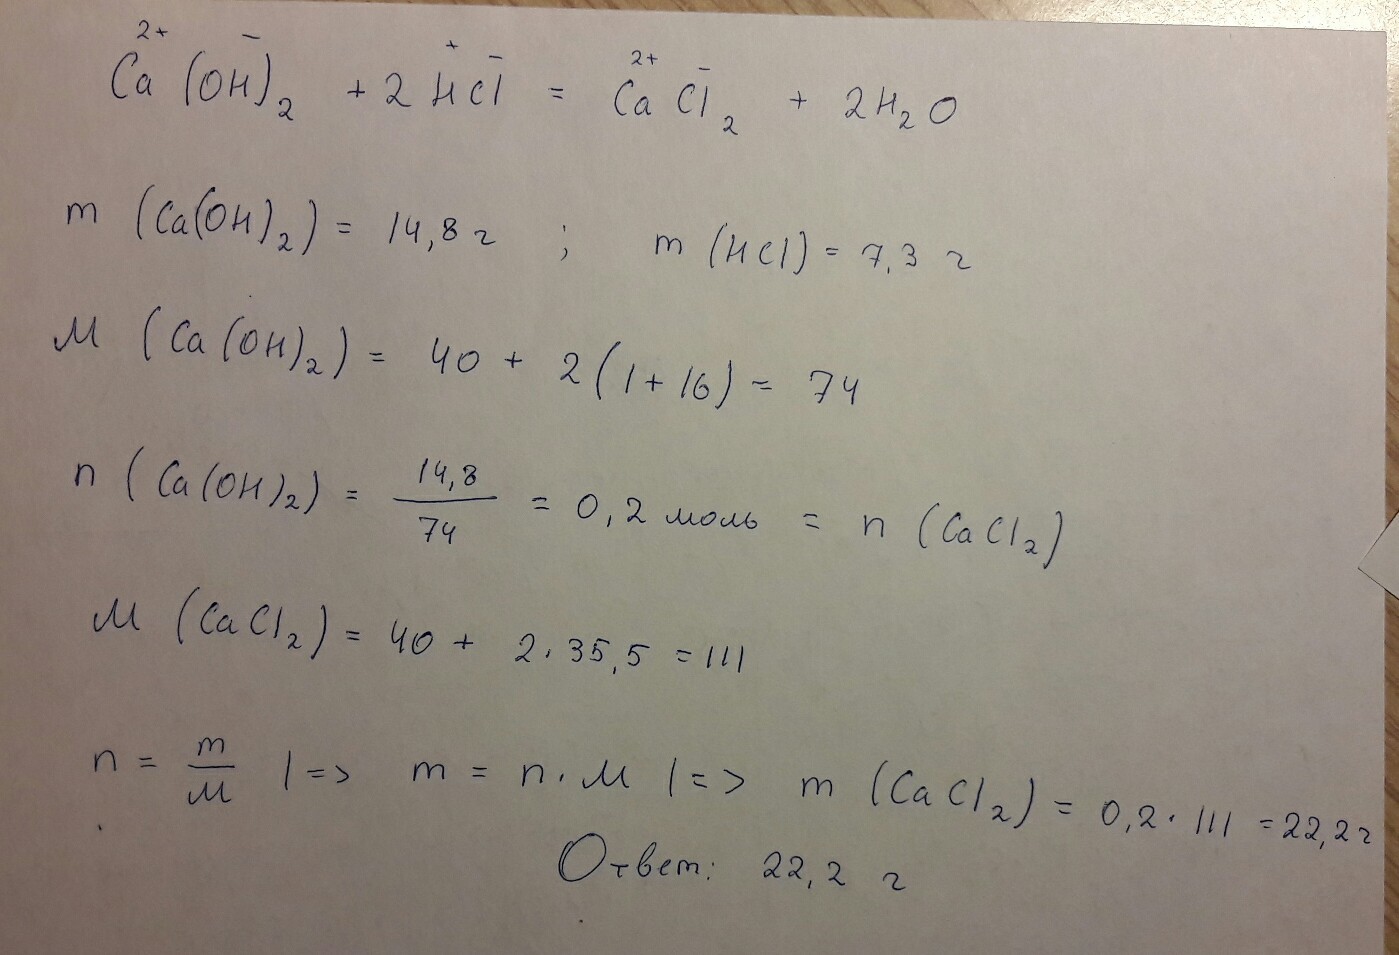 2+ − + − 2+ −
Ca (OH)₂ + 2 HCl = Ca Cl₂ + 2H₂O
m (Ca(OH)₂) = 14,8 г ; m (HCl) = 7,3 г
M (Ca(OH)₂) = 40 + 2(1+16) = 74
n (Ca(OH)₂) = 14,8/74 = 0,2 моль = n (CaCl₂)
M (CaCl₂) = 40 + 2·35,5 = 111
n = m/M |=> m = n·M |=> m (CaCl₂) = 0,2·111 = 22,2 г
Ответ: 22,2 г